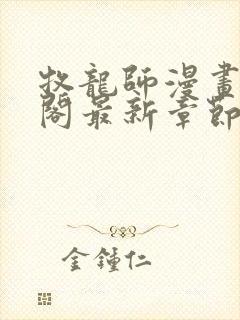 牧龍師漫畫
閣最新章節
金鍾仁